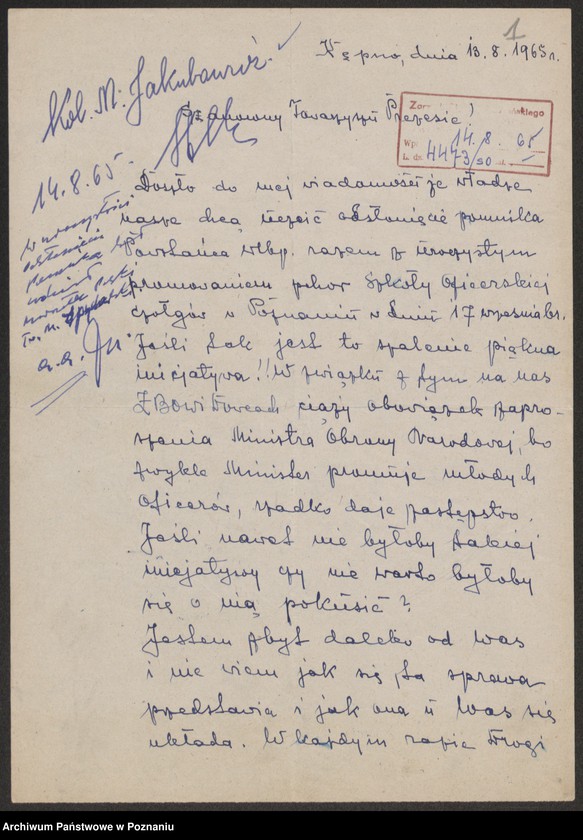 1
Kępno, dnia 13.8.1965 r.
Kol. M. Jakubowicz.
Szanowny Towarzyszu Prezesie!
Wpł. 14.8 65
L. dz. 4473/50
14.8.65.
Doszło do mej wiadomości że władze
nasze chcą uczcić odsłonięcie pomnika
Powstańca Wlkp. razem z uroczystym
promowaniem pchor Szkoły Oficerskiej
czołgów w Poznaniu w dniu 17 września br.
Jeśli tak jest to szalenie piękna
inicjatywa!! W związku z tym na nas
ZBoWiDowcach ciąży obowiązek zapro-
szenia Ministra Obrony Narodowej, bo
zwykle Minister promuje młodych
oficerów, rzadko daje zastępstwo.
Jeśli nawet nie byłoby takiej
inicjatywy czy nie warto byłoby
się o nią pokusić?
Jestem zbyt daleko od was
i nie wiem jak się ta sprawa
przedstawia i jak ona u Was się
układa. W każdym razie Drogi
w uroczystości
odsłonięcia
pomnika
udział
a.a.
Archiwum Państwowe w Poznaniu